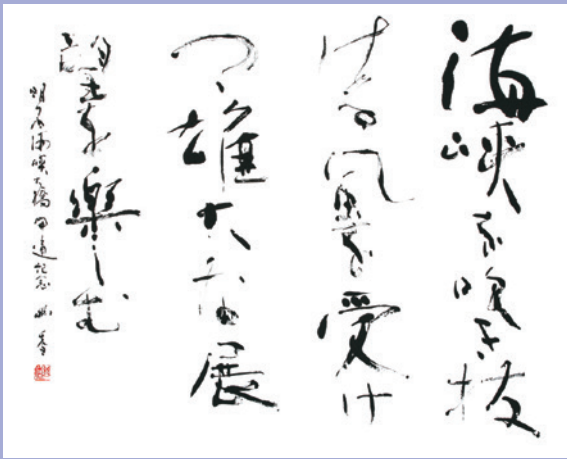 海峡を吹き抜
ける風を受け
つゝ雄大な展
望を樂しむ
明石海峡大橋開通記念